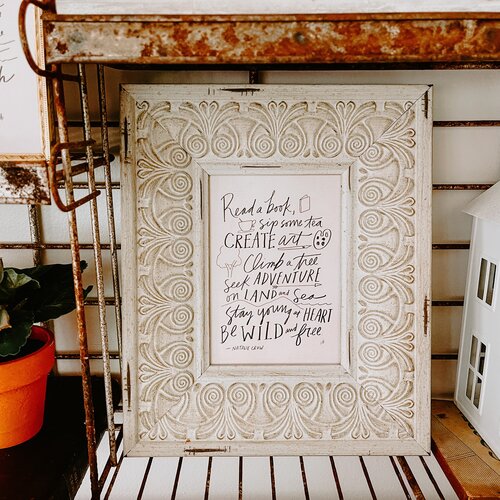 Read a book,
sip some tea
CREATE art
Climb a tree
seek ADVENTURE
on LAND and Sea
Stay young at HEART
BE WILD and free
— NATALIE CROW